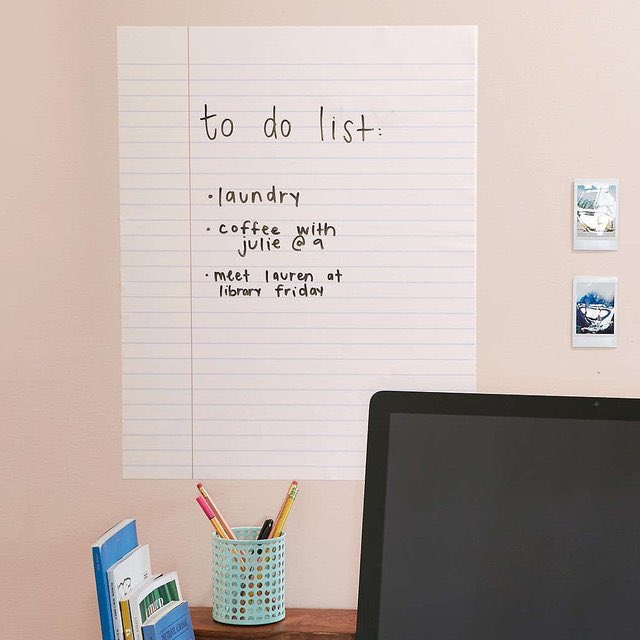 to do list:
• laundry
• coffee with
julie @ 9
• meet lauren at
library friday